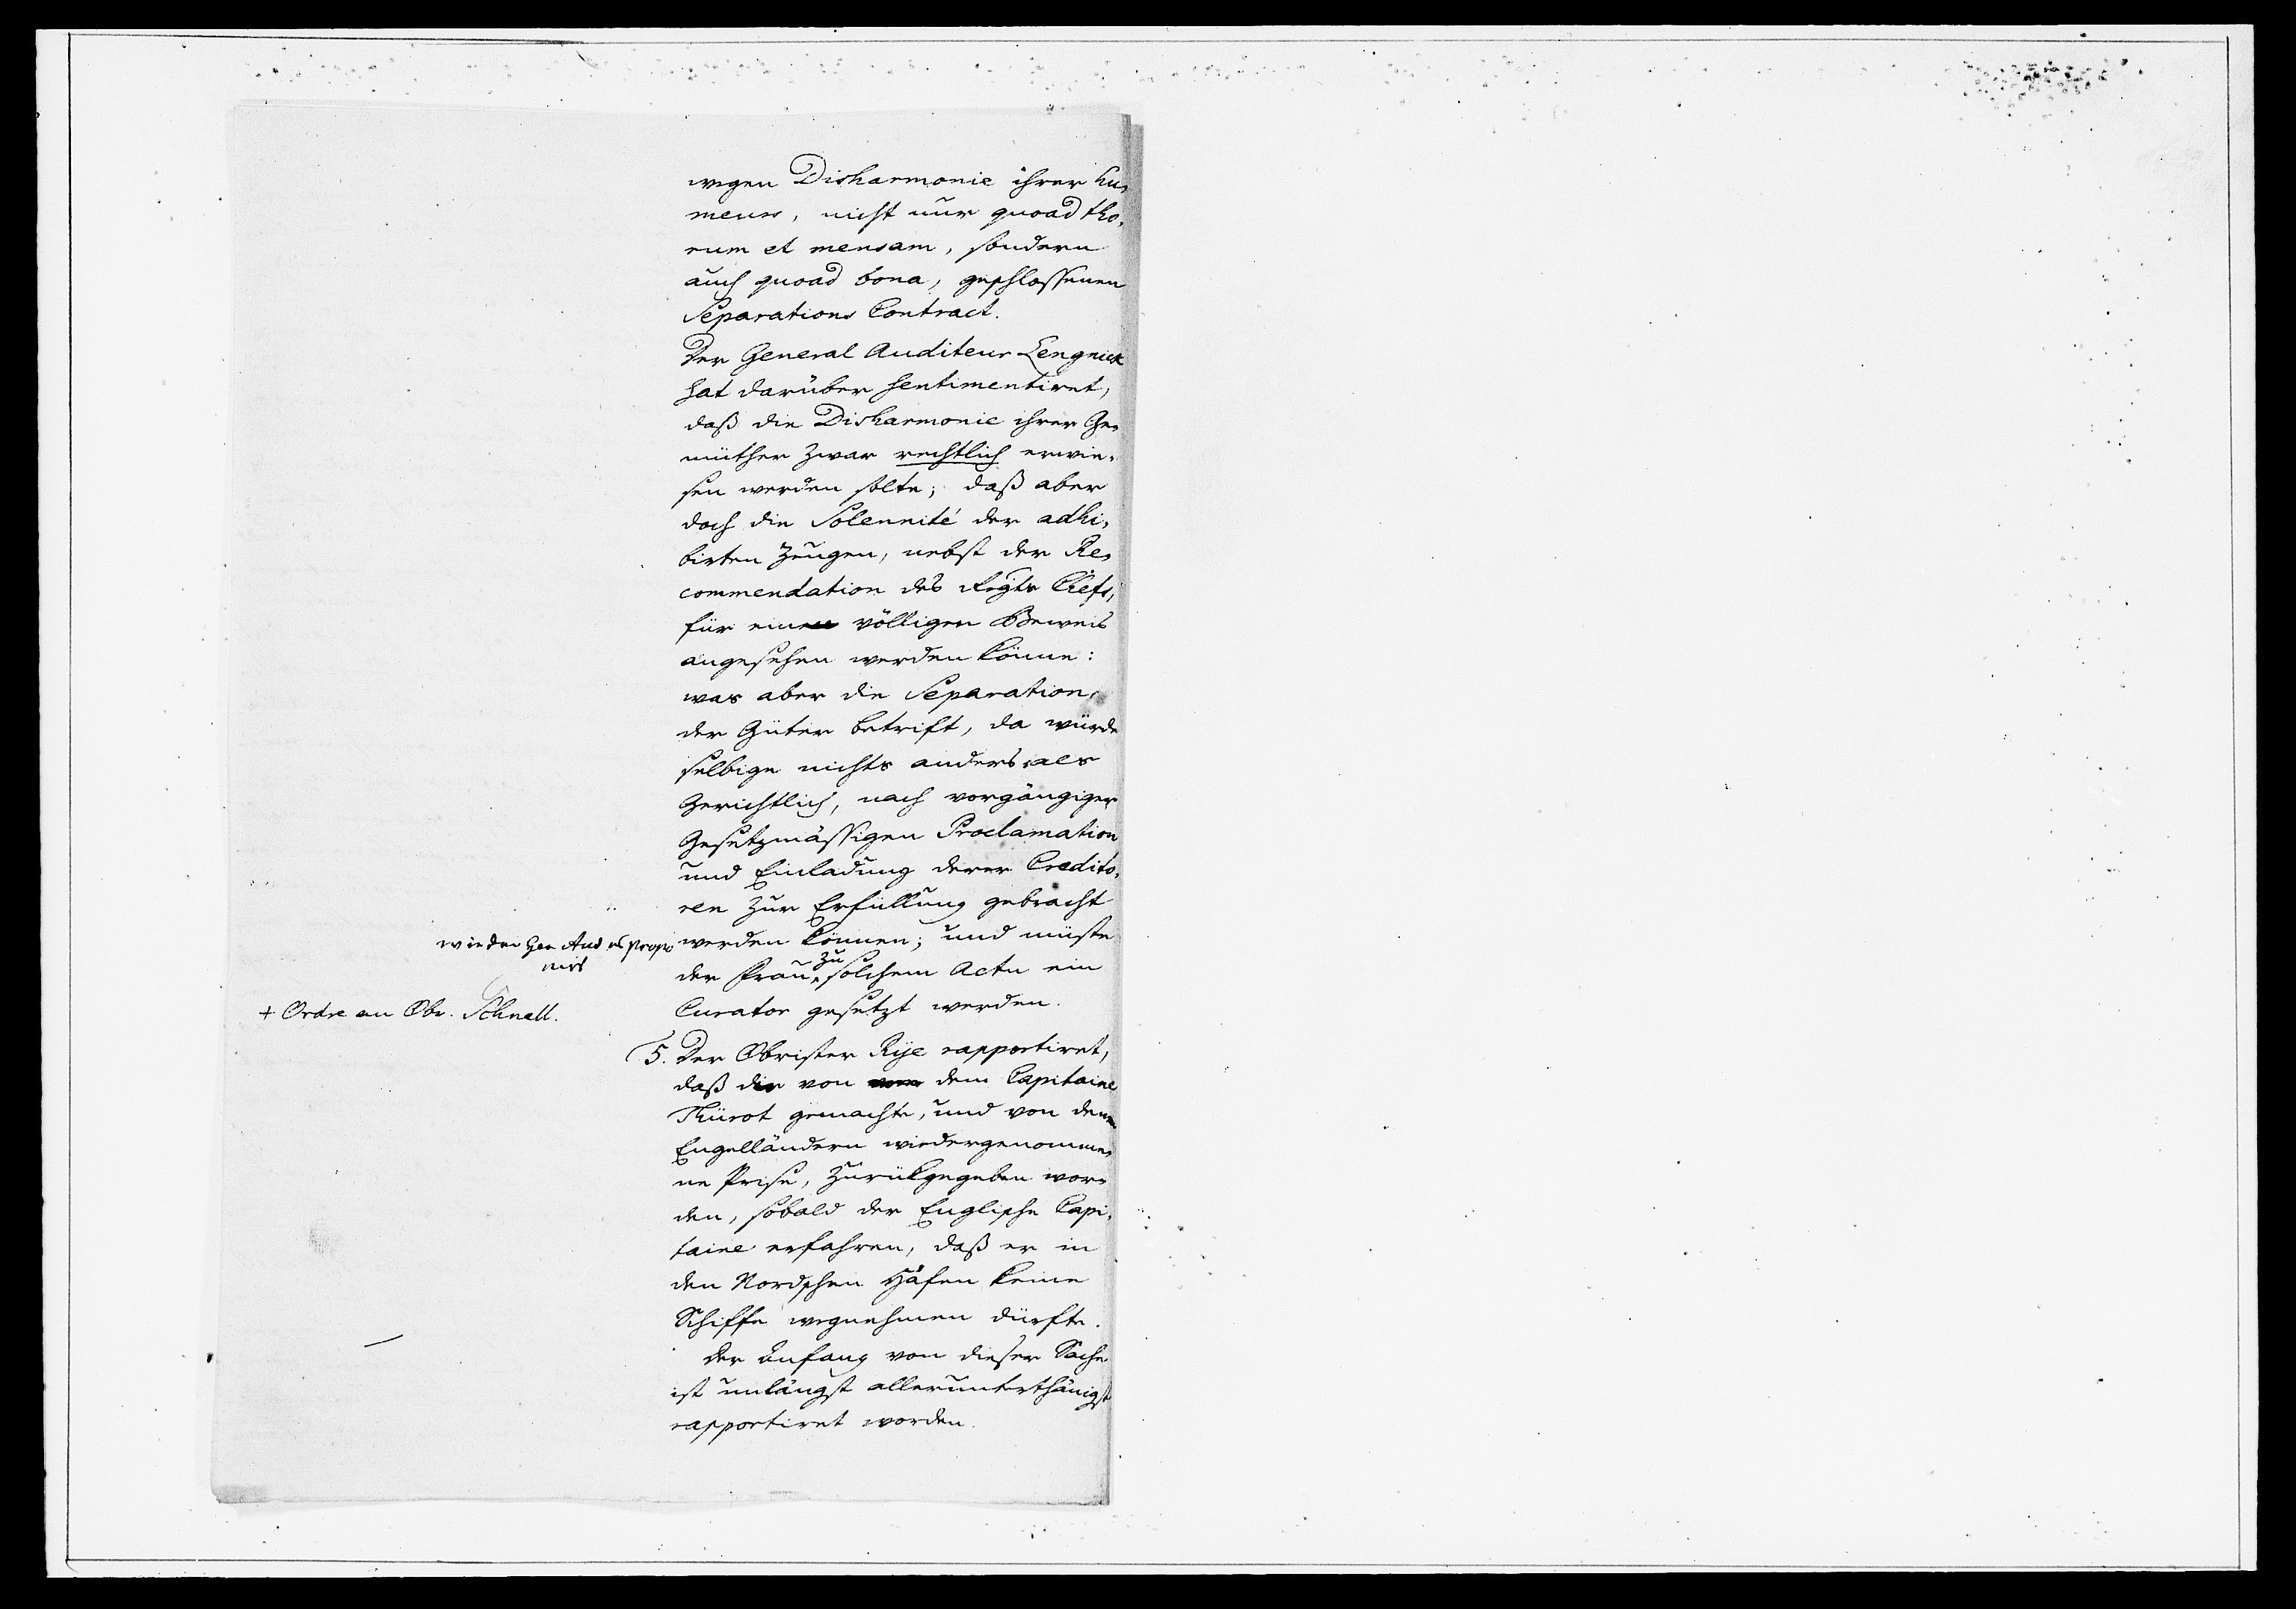 wegen Disharmonie ihrer Hu-
meurs, nicht nur quoad tho-
rum et mensam, sondern
auch quoad bona, geschlossenen
Separations Contract.
Der General Auditeur Lengnick
hat darüber sentimentiret,
daß die Disharmonie ihrer Ge-
müther zwar rechtlich erwie-
sen werden solte; daß aber
doch die Solennité der adhi-
birten Zeugen, nebst der Re-
commendation des Regts Chefs,
für einen völligen Beweis
angesehen werden könne:
was aber die Separation
der Güter betrift, da würde
selbige nichts anders als
Gerichtlich, nach vorgängiger
Gesetzmässigen Proclamation
und Einladung derer Credito-
ren zur Erfüllung gebracht
werden können; und müste
der Frau zu solchem Actu ein
Curator gesetzt werden.
wie der Gen Aud es propo
nirt
+ Ordre an Obr. Schnell.
5. Der Obrister Rije rapportiret,
daß die von dem Capitaine
Thürot gemachte, und von denen
Engelländern wiedergenomme-
ne Prise, zurückgegeben wor-
den, sobald der Englische Capi-
taine erfahren, daß er in
den Nordschen Häfen keine
Schiffe wegnehmen dürfte.
Der Anfang von dieser Sache
ist unlängst allerunterthänigst
rapportiret worden.